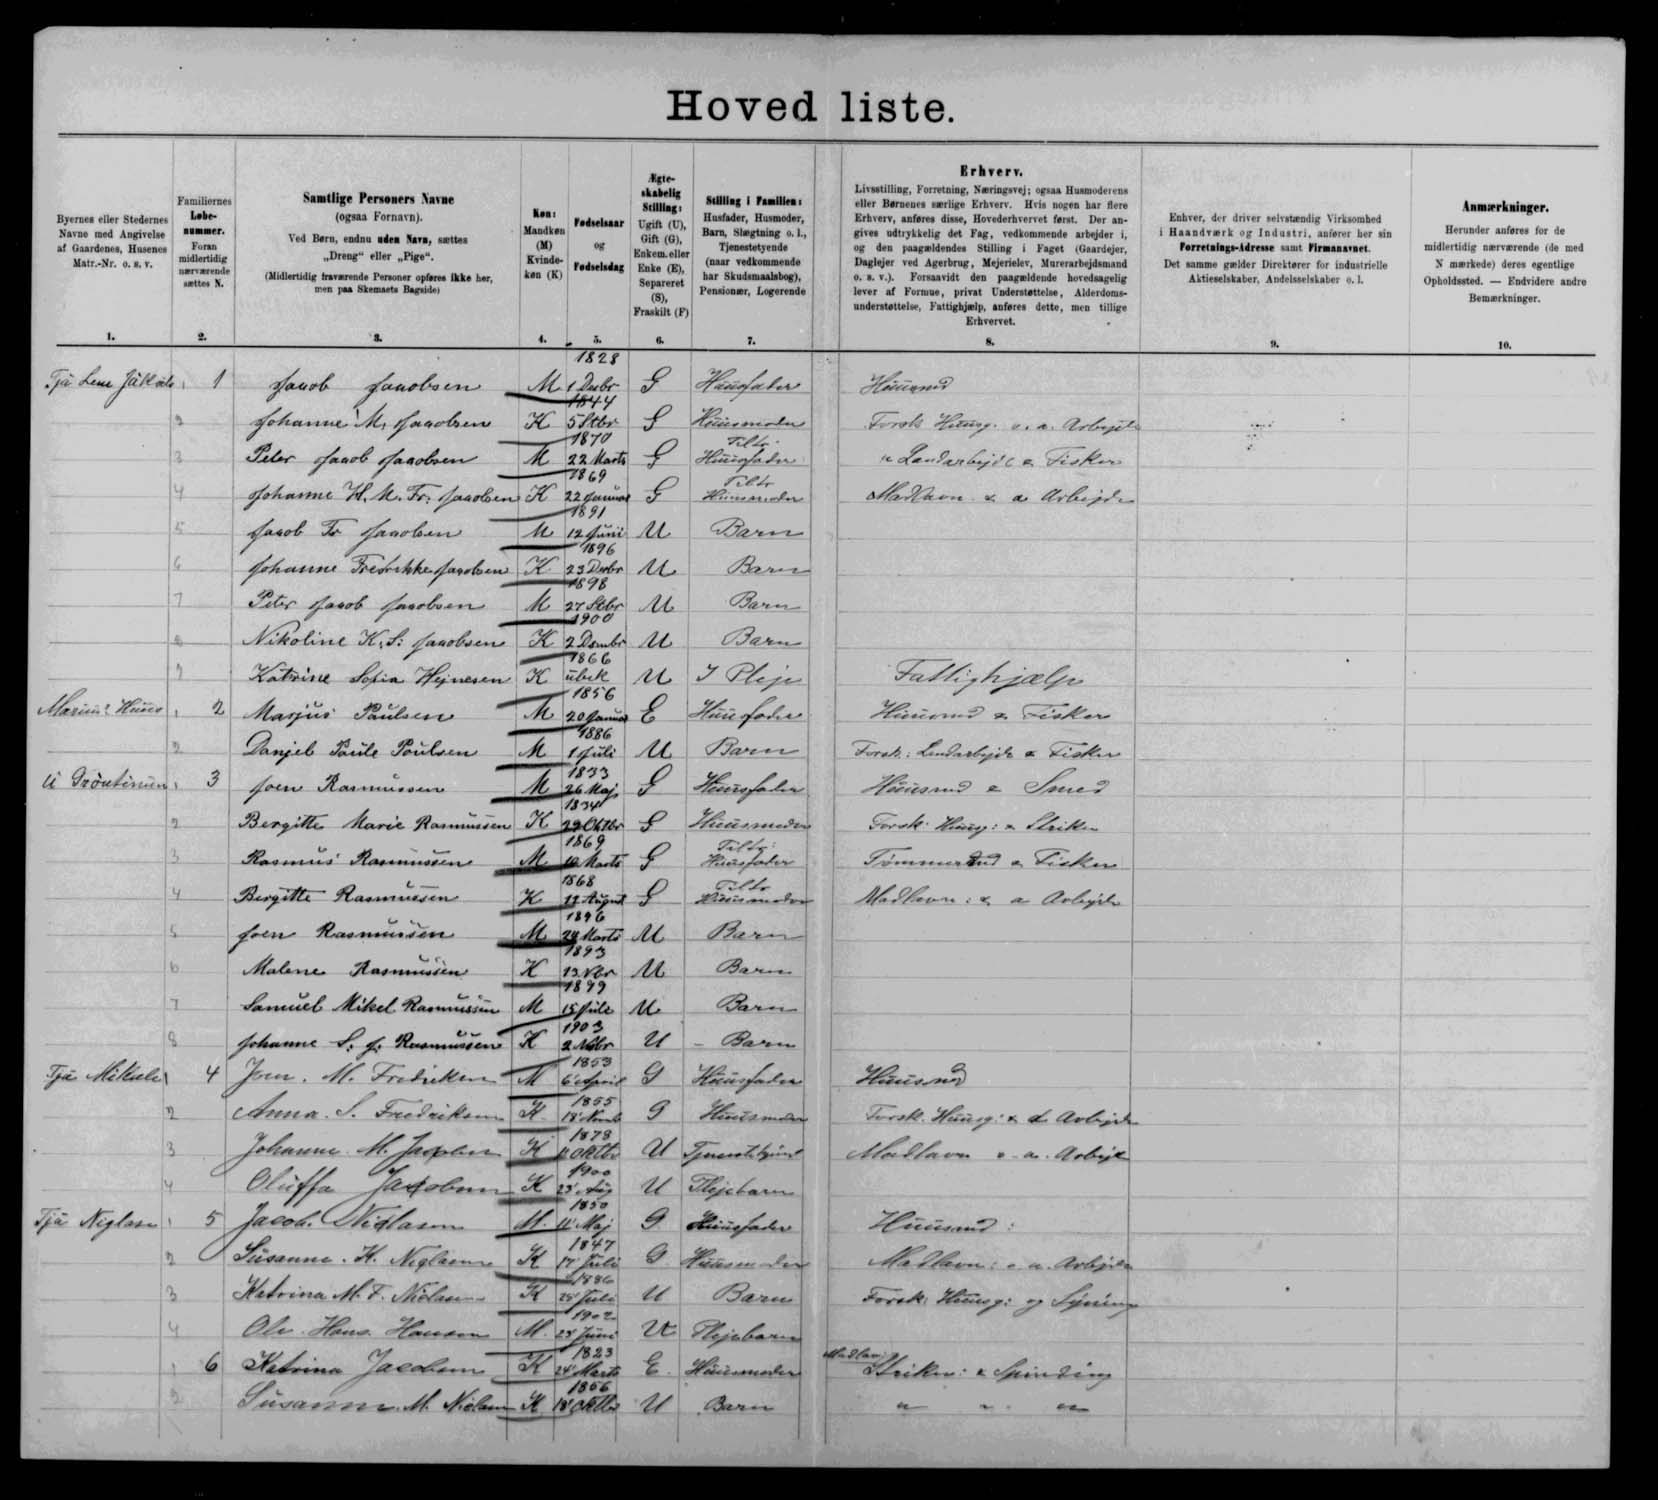 Hoved liste.
Byernes eller Stedernes Navne med Angivelse af Gaardenes, Husenes Matr.-Nr. o. s. v.
Familiernes Løbenummer. Foran midlertidig nærværende sættes N.
Samtlige Personers Navne
(ogsaa Fornavn).
Ved Børn, endnu uden Navn, sættes „Dreng" eller „Pige".
(Midlertidig fraværende Personer opføres ikke her, men paa Skemaets Bagside)
Køn: Mandkøn (M) Kvindekøn (K)
Fødselsaar og Fødselsdag
Ægteskabelig Stilling: Ugift (U), Gift (G), Enkem. eller Enke (E), Separeret (S), Fraskilt (F)
Stilling i Familien: Husfader, Husmoder, Barn, Slægtning o. l., Tjenestetyende (naar vedkommende har Skudsmaalsbog), Pensionær, Logerende
Erhverv.
Livsstilling, Forretning, Næringsvej; ogsaa Husmoderens eller Børnenes særlige Erhverv. Hvis nogen har flere Erhverv, anføres disse, Hovederhvervet først. Der angives udtrykkelig det Fag, vedkommende arbejder i, og den paagældendes Stilling i Faget (Gaardejer, Daglejer ved Agerbrug, Mejerielev, Murerarbejdsmand o. s. v.). Forsaavidt den paagældende hovedsagelig lever af Formue, privat Understøttelse, Alderdomsunderstøttelse, Fattighjælp, anføres dette, men tillige Erhvervet.
Enhver, der driver selvstændig Virksomhed i Haandværk og Industri, anfører her sin Forretnings-Adresse samt Firmanavnet. Det samme gælder Direktører for industrielle Aktieselskaber, Andelsselskaber o. l.
Anmærkninger.
Herunder anføres for de midlertidig nærværende (de med N mærkede) deres egentlige Opholdssted. — Endvidere andre Bemærkninger.
1. 2. 3. 4. 5. 6. 7. 8. 9. 10.
1 Jacob Jacobsen M 1828 1 Decbr G Huusfader Huusmd
2 Johanne M. Jacobsen K 1844 5 Stbr G Huusmoder Forsk. Huusg. o. a. Arbejde
3 Peter Jacob Jacobsen M 1870 22 Marts G Huusfader Landarbejde & Fisker
4 Johanne H. M. Fr. Jacobsen K 1869 22 Januar G Huusmoder Madlavn & a Arbejde
5 Jacob Fr Jacobsen M 1891 12 Juni U Barn
6 Johanne Fredrikke Jacobsen K 1896 23 Decbr U Barn
7 Peter Jacob Jacobsen M 1898 27 Stbr U Barn
8 Nikoline K. S: Jacobsen K 1900 2 Dsmbr U Barn
9 Katrine Sofia Hejnesen K 1866 ubek U I Pleje Fattighjælp
Marius Huus 2 Marjus Paulsen M 1856 20 Januar E Huusfader Huusmd & Fisker
2 Danjel Paule Poulsen M 1886 1 Juli U Barn Forsk: Landarbejde & Fisker
3 Joen Rasmussen M 1833 26 Maj G Huusfader Huusmd & Smed
2 Bergitte Marie Rasmussen K 1834 29 Oktbr G Huusmoder Forsk: Huusg: & Strikke
3 Rasmus Rasmussen M 1869 10 Marts G Huusfader Tømmermd & Fisker
4 Bergitte Rasmussen K 1868 August G Huusmoder Madlavn: & a Arbejde
5 Joen Rasmussen M 1896 Marts U Barn
6 Malene Rasmussen K 1893 13 Nbr U Barn
7 Samuel Mikel Rasmussen M 1899 15 Juli U Barn
8 Johanne S. J. Rasmussen K 1903 2 U Barn
Tjä Mikuls 4 Joen. M. Fredriksen M 1853 6 April G Huusfader Huusmd
2 Anna. S. Fredriksen K 1855 18 G Huusmoder Forsk. Huusg: & a Arbejde
3 Johanne M. K 1878 11 Oktbr U Madlavn o. a. Arbejde
4 Oluffa Jacobsen K 1900 23 Aug U Plejebarn
Tjä Niglasa 5 Jacob. Niclasen M. 1850 11 Maj G Huusfader Huusmd:
2 Susanne. K. Niglasen K 1847 17 Juli G Huusmoder Madlavn: o a. Arbejde
3 Katrina M. F. Niclasen K 1886 28 Juli U Barn Forsk: Huusg: og Syning
4 Ole. Hans. Hansen M. 1902 Juni U Plejebarn
6 Katrina Jacobsen K 1823 24 Marts E. Huusmoder Madlavn: Strikn: & Spinding
2 Susanne. M. Niclasen K 1856 18 Oktbr U Barn " " "